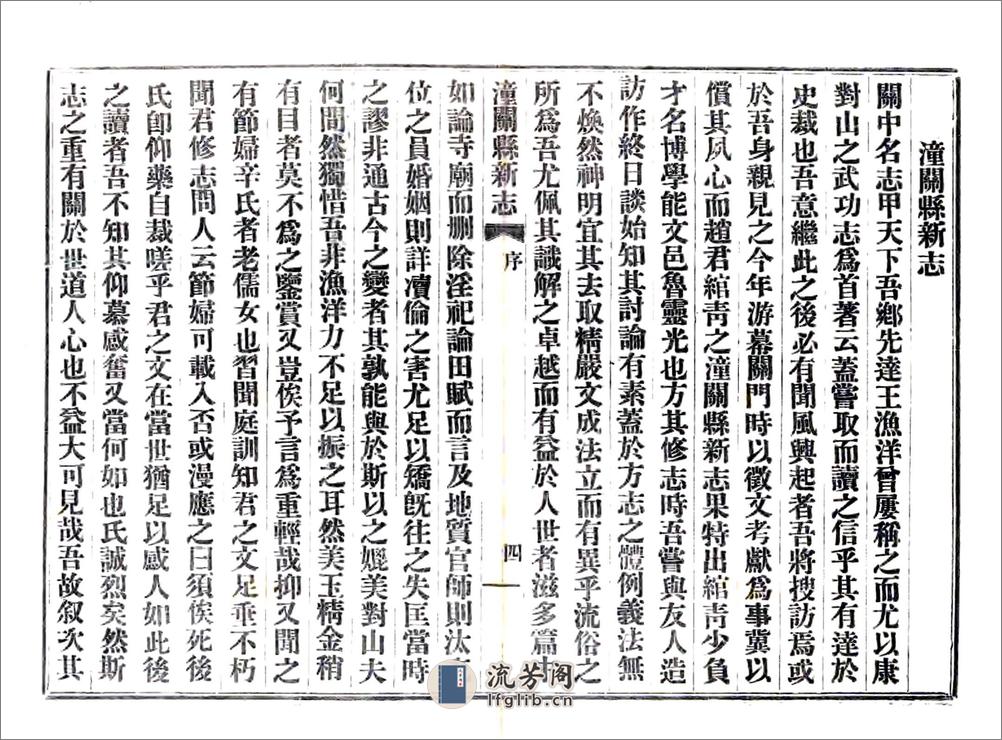 潼關縣新志
關中名志甲天下吾鄉先達王漁洋曾屢稱之而尤以康
對山之武功志爲首著云蓋嘗取而讀之信乎其有達於
史裁也吾意繼此之後必有聞風興起者吾將搜訪焉或
於吾身親見之今年游幕關門時以徵文考獻爲事冀以
償其夙心而趙君綰靑之潼關縣新志果特出綰靑少負
才名博學能文邑魯靈光也方其修志時吾嘗與友人造
訪作終日談始知其討論有素蓋於方志之體例義法無
不煥然神明宜其去取精嚴文成法立而有異乎流俗之
所爲吾尤佩其識解之卓越而有益於人世者滋多篇中
潼關縣新志 序 四
如論寺廟而删除淫祀論田賦而言及地質官師則汰
位之員婚姻則詳瀆倫之害尤足以矯旣往之失匡當時
之謬非通古今之變者其孰能與於斯以之媲美對山夫
何間然獨惜吾非漁洋力不足以振之耳然美玉精金稍
有目者莫不爲之鑒賞又豈俟予言爲重輕哉抑又聞之
有節婦辛氏者老儒女也習聞庭訓知君之文足垂不朽
聞君修志問人云節婦可載入否或漫應之曰須俟死後
氏卽仰藥自裁嗟乎君之文在當世猶足以感人如此後
之讀者吾不知其仰慕感奮又當何如也氏誠烈矣然斯
志之重有關於世道人心也不益大可見哉吾故叙次其
流芳阁
lfglib.cn